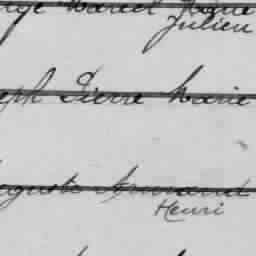 Marcel
Julien
eph Pierre Marie
uguste Armand
Henri